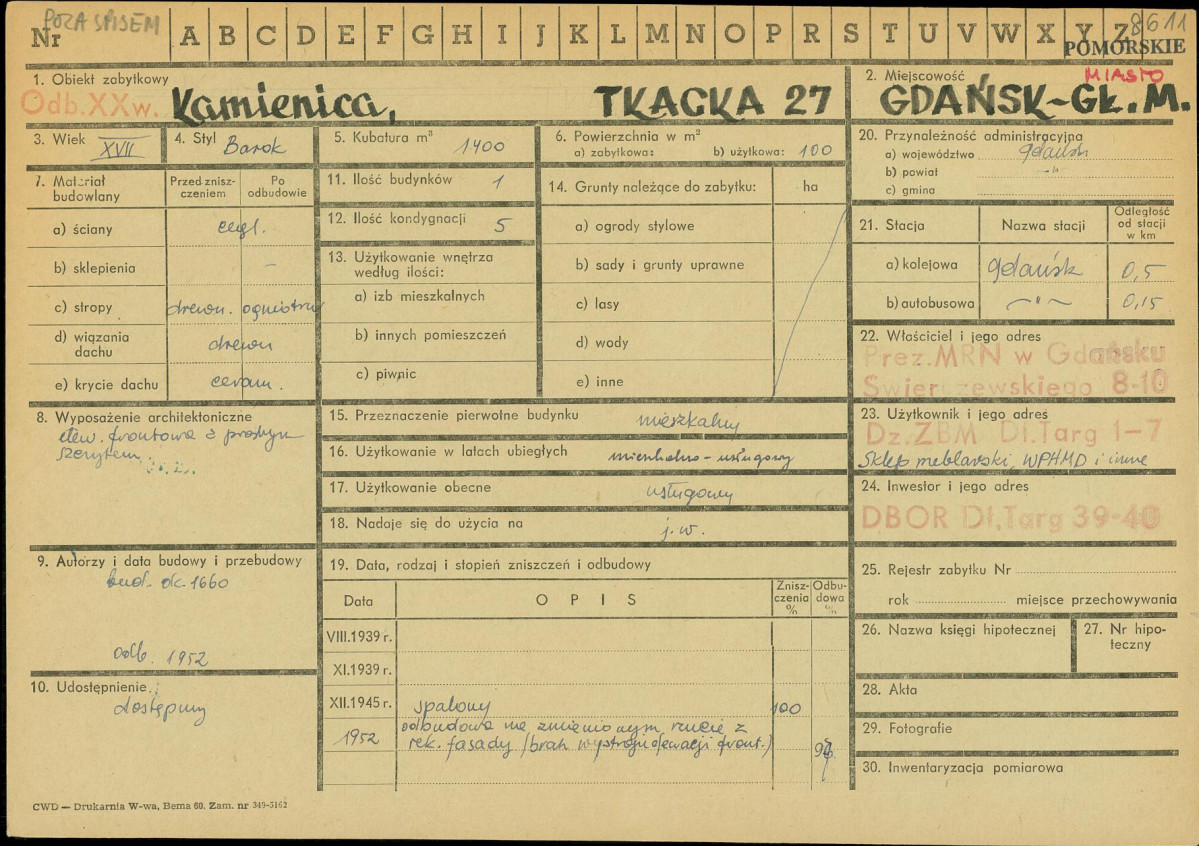 Nr POZA SPISEM A B C D E F G H I J K L M N O P R S T U V W X Y Z 8611
POMORSKIE
1. Obiekt zabytkowy
Odb.XXw. Kamienica, TKACKA 27
2. Miejscowość MIASTO
GDAŃSK-GŁ.M.
3. Wiek XVII
4. Styl Barok
5. Kubatura m³ 1400
6. Powierzchnia w m²
a) zabytkowa: b) użytkowa: 100
7. Materiał budowlany
Przed zniszczeniem
Po odbudowie
a) ściany cegł.
b) sklepienia –
c) stropy drewn. ogniotrw
d) wiązania dachu drewn
e) krycie dachu ceram.
8. Wyposażenie architektoniczne
elew. frontowa z prostym
szczytem
9. Autorzy i data budowy i przebudowy
bud. ok. 1660
odb. 1952
10. Udostępnienie
dostępny
11. Ilość budynków 1
12. Ilość kondygnacji 5
13. Użytkowanie wnętrza według ilości:
a) izb mieszkalnych
b) innych pomieszczeń
c) piwnic
14. Grunty należące do zabytku: ha
a) ogrody stylowe
b) sady i grunty uprawne
c) lasy
d) wody
e) inne
15. Przeznaczenie pierwotne budynku mieszkalny
16. Użytkowanie w latach ubiegłych mieszkalno-usługowy
17. Użytkowanie obecne usługowy
18. Nadaje się do użycia na j.w.
19. Data, rodzaj i stopień zniszczeń i odbudowy
Data OPIS Zniszczenia % Odbudowa %
VIII.1939 r.
XI.1939 r.
XII.1945 r. spalony 100
1952 odbudowa na zmienionym rzucie z
rek. fasady (brak wystroju elewacji front.)
20. Przynależność administracyjna
a) województwo gdańsk
b) powiat -"-
c) gmina
21. Stacja Nazwa stacji Odległość od stacji w km
a) kolejowa gdańsk 0,5
b) autobusowa -"- 0,15
22. Właściciel i jego adres
Prez.MRN w Gdańsku
Swierczewskiego 8-10
23. Użytkownik i jego adres
Dz.ZBM Dl.Targ 1-7
Sklep meblarski, WPHMD i inne
24. Inwestor i jego adres
DBOR Dł.Targ 39-40
25. Rejestr zabytku Nr
rok miejsce przechowywania
26. Nazwa księgi hipotecznej
27. Nr hipoteczny
28. Akta
29. Fotografie
30. Inwentaryzacja pomiarowa
CWD — Drukarnia W-wa, Bema 60. Zam. nr 349-5162